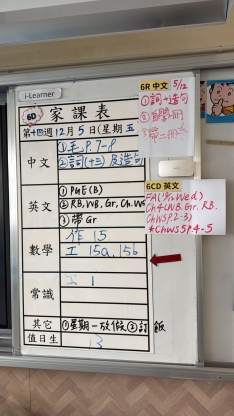 i-Learner
6D 家課表
第十四週12月5日(星期五
中文
①毛.P.7-8
②詞(十三)及造句
英文
①PGE(B)
②RB,WB,Gr,Ch.WS
③帶Gr
數學
作 15
工 15a, 15b
常識
工 1
其它
①星期一放假②訂飯
值日生
13
6R 中文 5/12
①詞+造句
6CD 英文
Ch4(WB, Gr. RB.
ChWSP.2-3)
*ChWSP.4-5